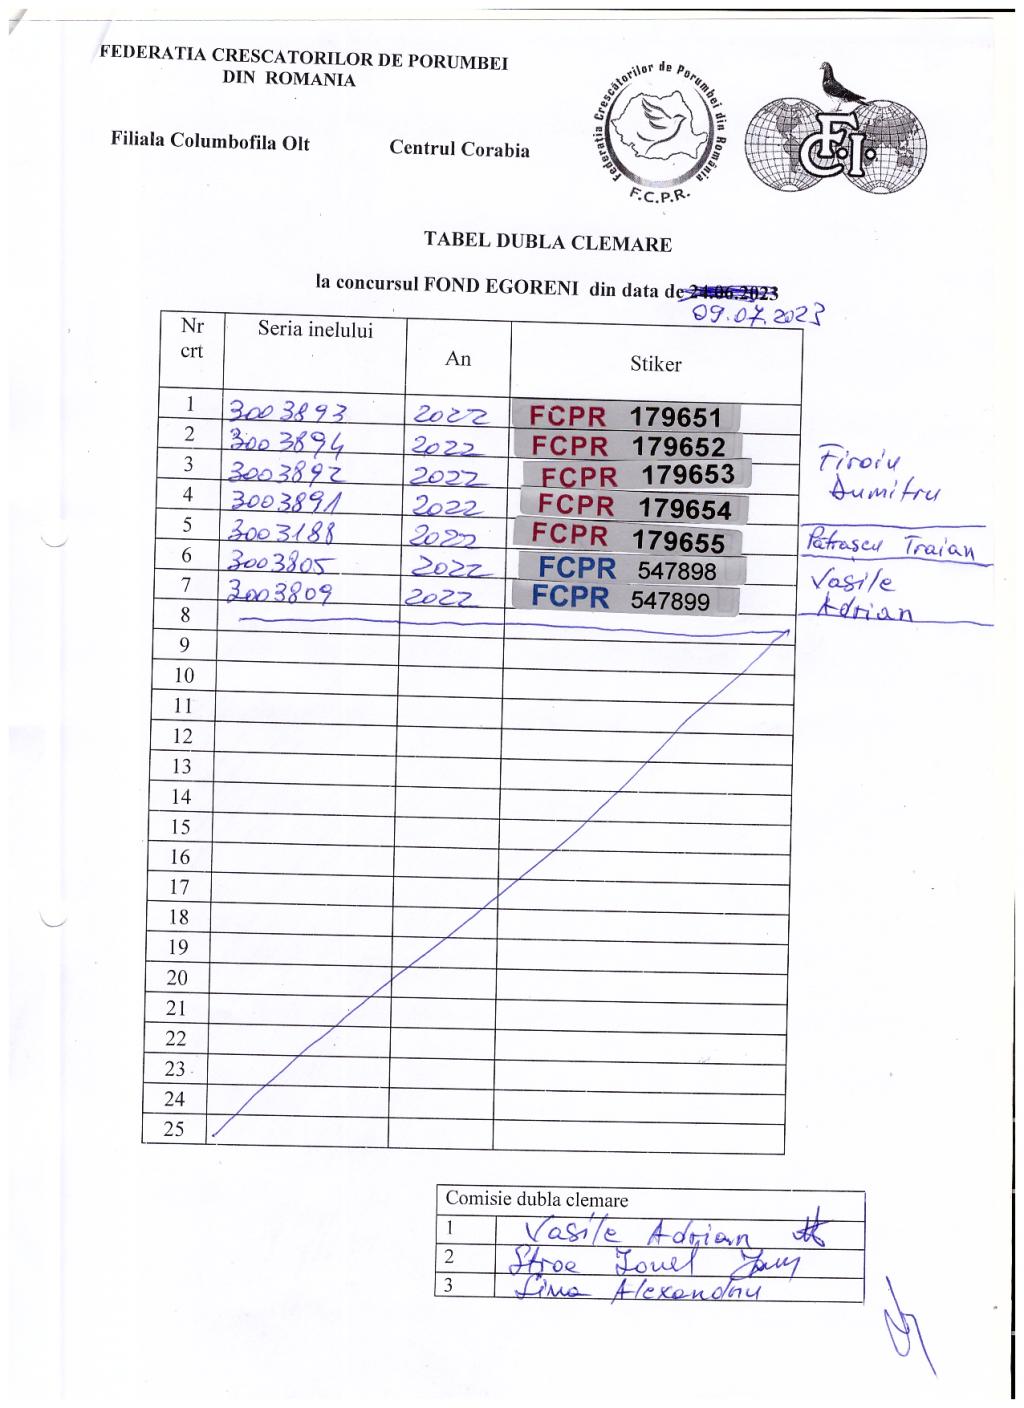 FEDERATIA CRESCATORILOR DE PORUMBEI
DIN ROMANIA
Filiala Columbofila Olt Centrul Corabia
Federația Crescătorilor de Porumbei din România
F.C.P.R.
F.C.I.
TABEL DUBLA CLEMARE
la concursul FOND EGORENI din data de 24.06.2023
09.07.2023
Nr crt Seria inelului An Stiker
1 3003893 2022 FCPR 179651
2 3003894 2022 FCPR 179652
3 3003892 2022 FCPR 179653
4 3003891 2022 FCPR 179654
5 3003188 2022 FCPR 179655
6 3003805 2022 FCPR 547898
7 3003809 2022 FCPR 547899
Firoiu
Dumitru
Patrascu Traian
Vasile
Adrian
8
9
10
11
12
13
14
15
16
17
18
19
20
21
22
23
24
25
Comisie dubla clemare
1 Vasile Adrian
2 Stroe Ionel
3 Lina Alexandru